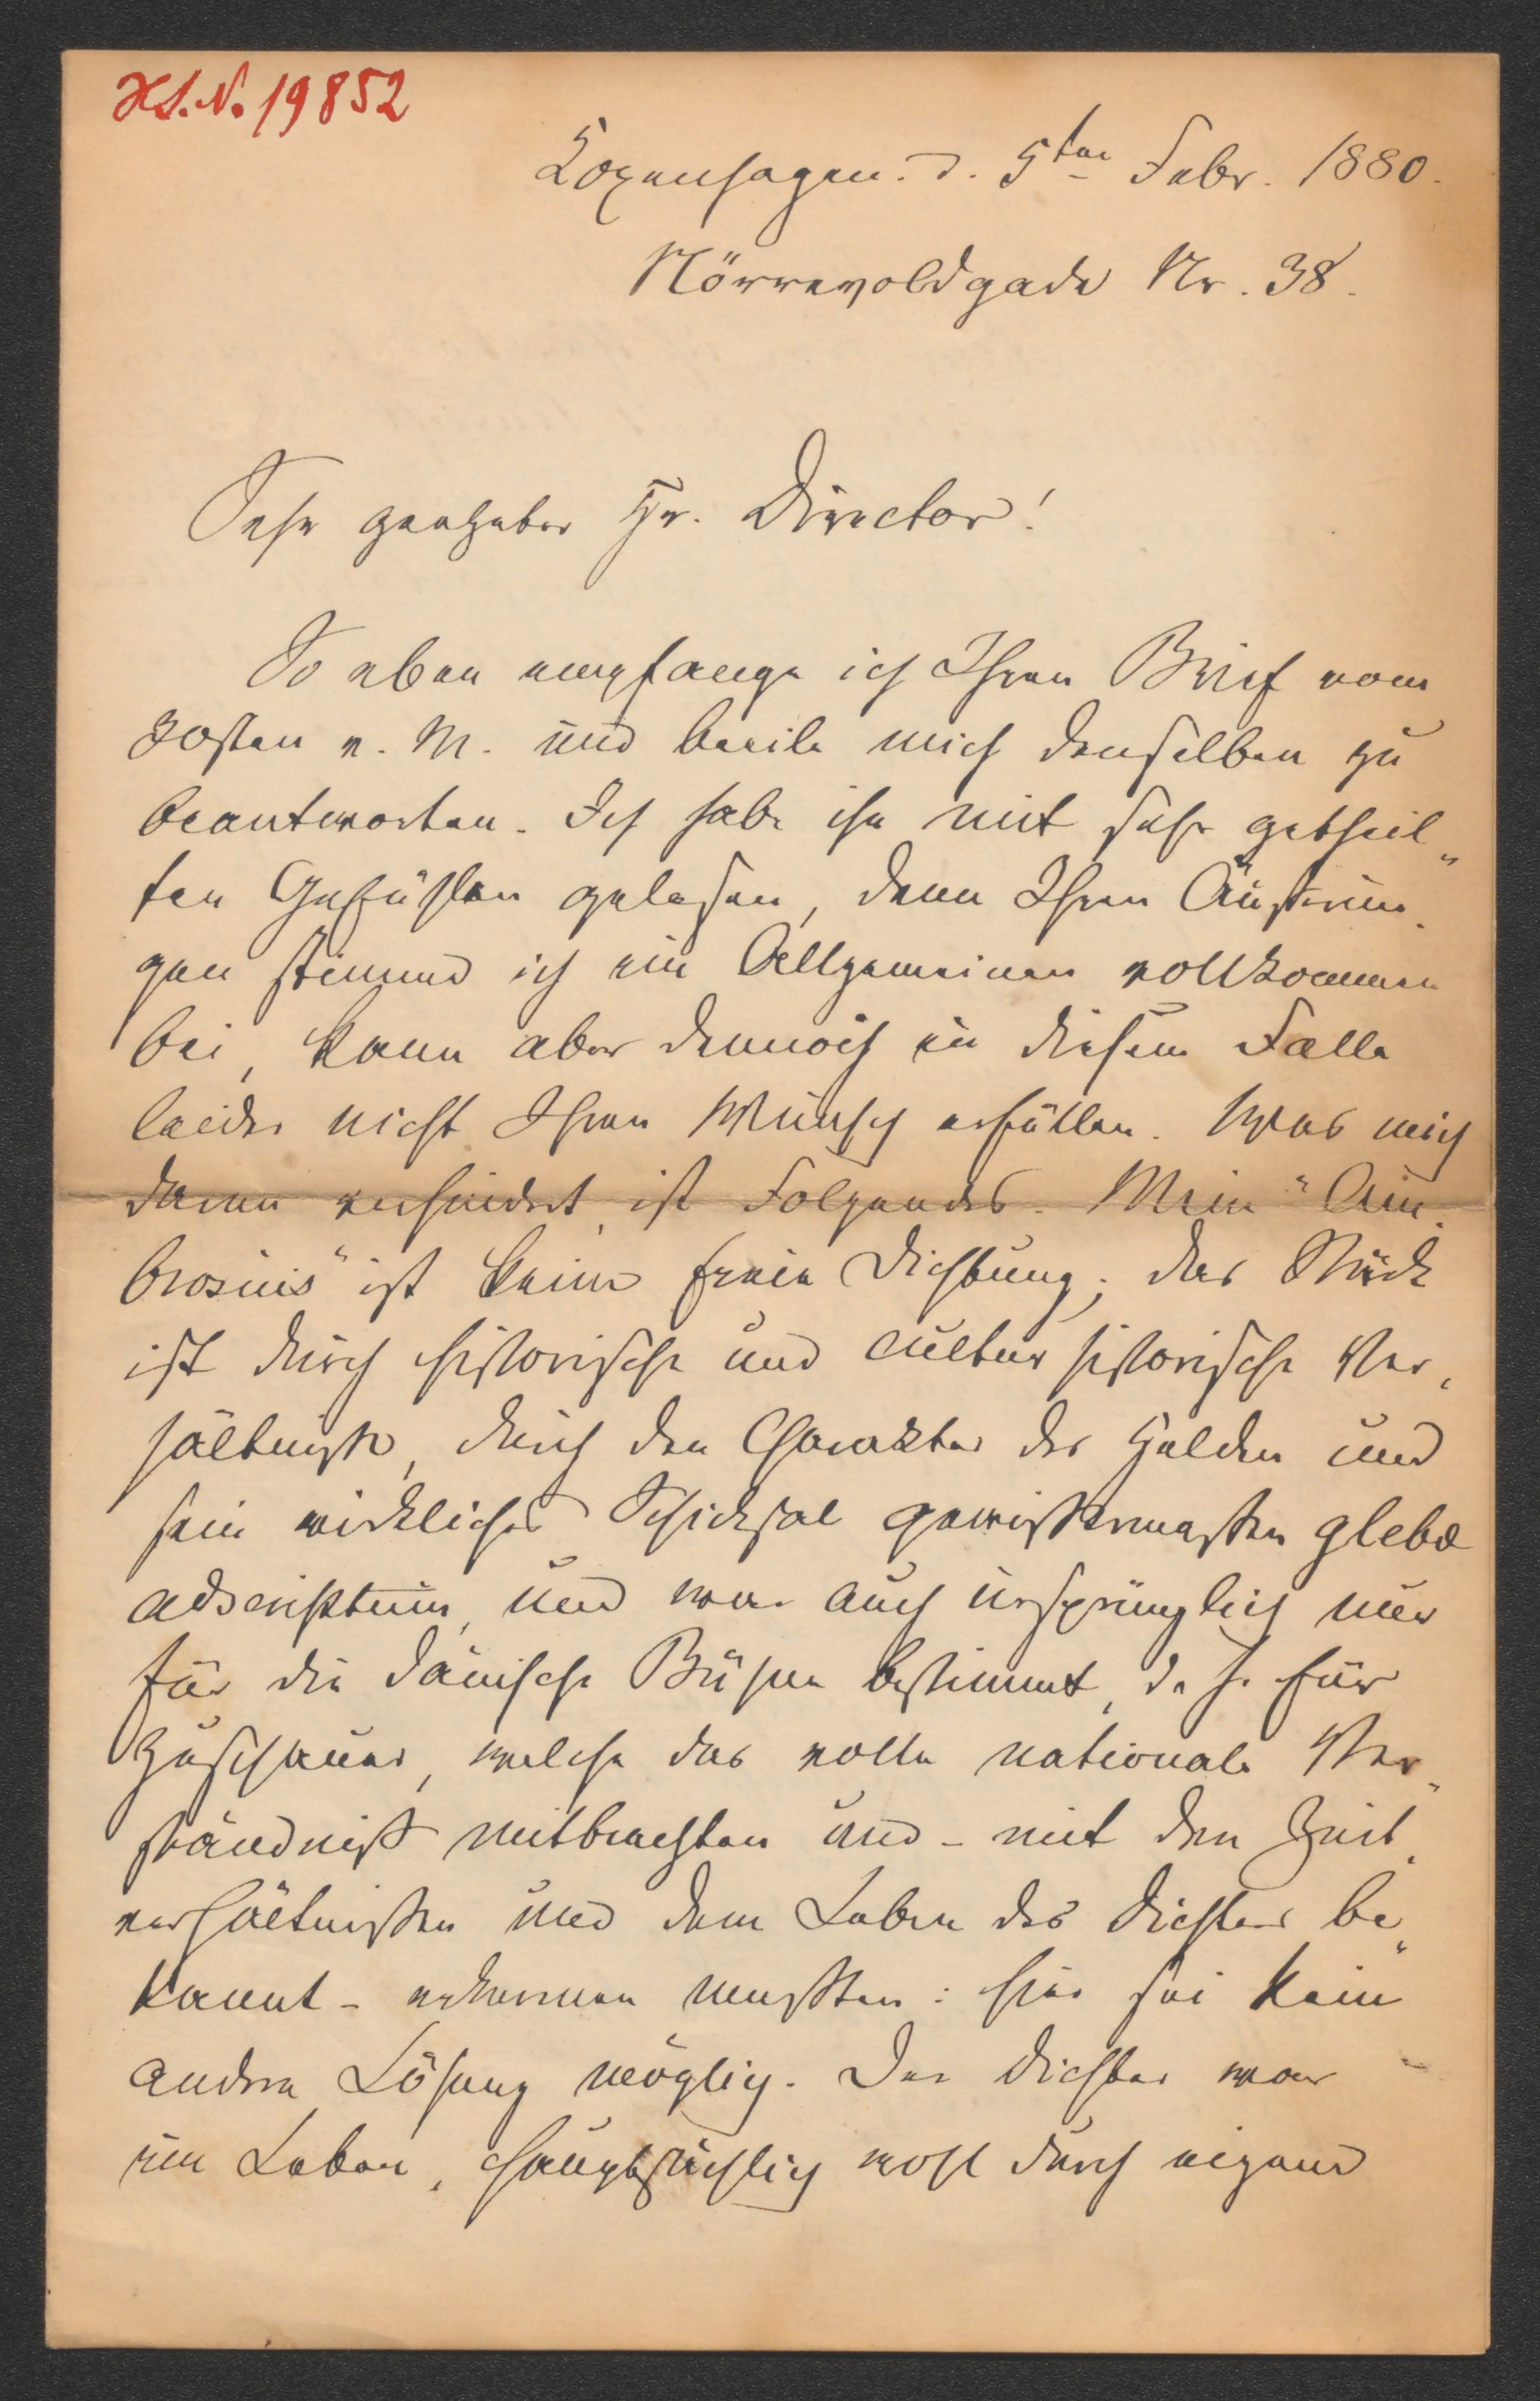 HS. N. 19852
Kopenhagen. d. 5ten Febr. 1880.
Nörrevoldgade Nr. 38.
Sehr geehrter Hr. Director!
So eben empfange ich Ihren Brief vom
30sten v. M. und beeile mich denselben zu
beantworten. Ich habe ihn mit sehr getheil„
ten Gefühlen gelesen, denn Ihren Äußerun„
gen stimme ich im Allgemeinen vollkommen
bei, kann aber dennoch in diesem Falle
leider nicht Ihren Wunsch erfüllen. Was mich
daran verhindert, ist Folgendes. Mein "Am„
brosius" ist keine freie Dichtung; das Stück
ist durch historische und culturhistorische Ver„
hältnisse, durch den Charakter des Helden und
sein wirkliches Schicksal gewissermassen glebæ
adscriptum, und war auch ursprünglich nur
für die dänische Bühne bestimmt, d. h. für
Zuschauer, welche das volle nationale Ver„
ständniß mitbrachten und - mit den Zeit„
verhältnissen und dem Leben des Dichters be„
kannt - erkennen mussten: hier sei kein
andere Lösung möglig. Der Dichter war
im Leben, hauptsächlig wohl durch eigene